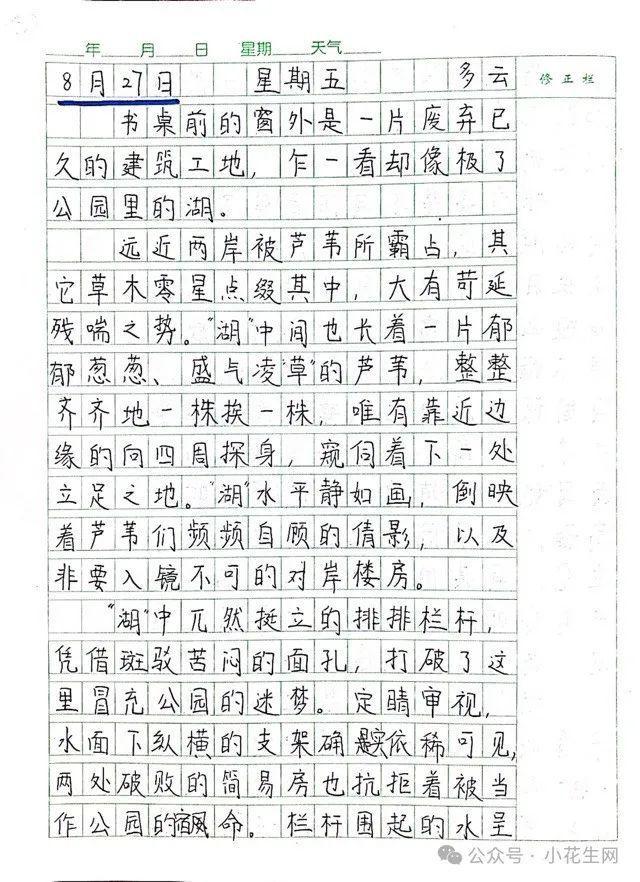 年 月 日 星期 天气
修正栏
8月27日 星期五 多云
书桌前的窗外是一片废弃已
久的建筑工地，乍一看却像极了
公园里的湖。
远近两岸被芦苇所霸占，其
它草木零星点缀其中，大有苛延
残喘之势。“湖”中间也长着一片郁
郁葱葱、盛气凌“草”的芦苇，整整
齐齐地一株挨一株，唯有靠近边
缘的向四周探身，窥伺着下一处
立足之地。“湖”水平静如画，倒映
着芦苇们频频自顾的倩影，以及
非要入镜不可的对岸楼房。
“湖”中兀然挺立的排排栏杆，
凭借斑驳苦闷的面孔，打破了这
里冒充公园的迷梦。定睛审视，
水面下纵横的支架确是实依稀可见，
两处破败的简易房也抗拒着被当
作公园的宿命。栏杆围起的水呈
公众号·小花生网